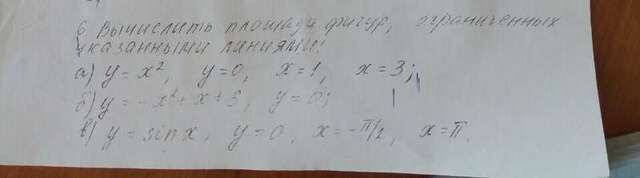 6. Вычислить площади фигур, ограниченных
указанными линиями:
а) y = x², y=0, x=1, x=3;
б) y = -x²+x+3, y=0;
в) y = sin x, y=0, x=-π/2, x=π.